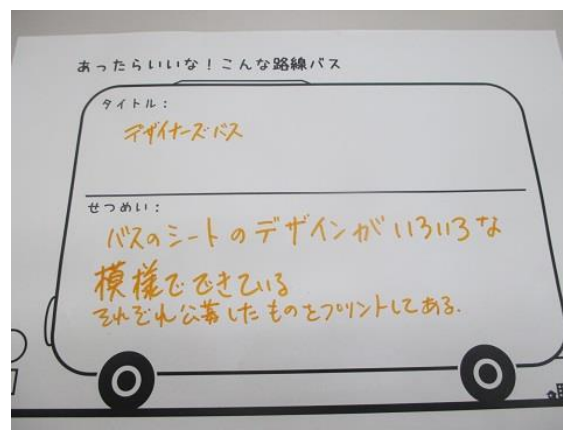 あったらいいな！こんな路線バス
タイトル：
デザイナーズバス
せつめい：
バスのシートのデザインがいろいろな
模様でできている
それぞれ公募したものをプリントしてある.